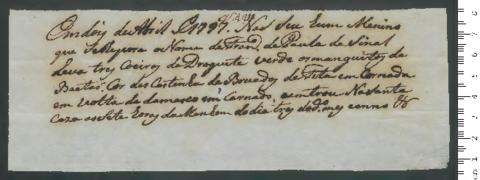 Em dois de Abril de 1797. Nas seu eum Menino
que se Repora o Nome de Fran.co de Paula de Sinal
Leva tres Coeiros de Droguete verde os manguitos de
Baetão, Cor des Cortinha de Bocados de Fita em Cornada
em volta de damasco em Carnado, e emtrou Na Santa
Caza as Sete horas da Menhem do dia tres do d.o mes e anno